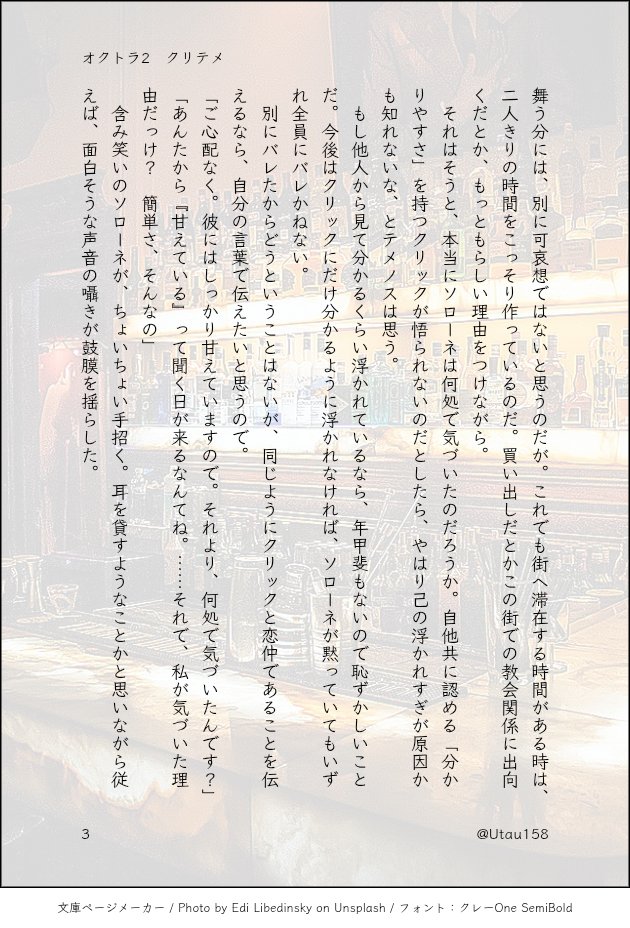 オクトラ2　クリテメ
舞う分には、別に可哀想ではないと思うのだが。これでも街へ滞在する時間がある時は、
二人きりの時間をこっそり作っているのだ。買い出しだとかこの街での教会関係に出向
くだとか、もっともらしい理由をつけながら。
　それはそうと、本当にソローネは何処で気づいたのだろうか。自他共に認める「分か
りやすさ」を持つクリックが悟られないのだとしたら、やはり己の浮かれすぎが原因か
も知れないな、とテメノスは思う。
　もし他人から見て分かるくらい浮かれているなら、年甲斐もないので恥ずかしいこと
だ。今後はクリックにだけ分かるように浮かれなければ、ソローネが黙っていてもいず
れ全員にバレかねない。
　別にバレたからどうということはないが、同じようにクリックと恋仲であることを伝
えるなら、自分の言葉で伝えたいと思うので。
「ご心配なく。彼にはしっかり甘えていますので。それより、何処で気づいたんです？」
「あんたから『甘えている』って聞く日が来るなんてね。……それで、私が気づいた理
由だっけ？　簡単さ、そんなの」
　含み笑いのソローネが、ちょいちょい手招く。耳を貸すようなことかと思いながら従
えば、面白そうな声音の囁きが鼓膜を揺らした。
3
@Utau158
文庫ページメーカー / Photo by Edi Libedinsky on Unsplash / フォント：クレーOne SemiBold